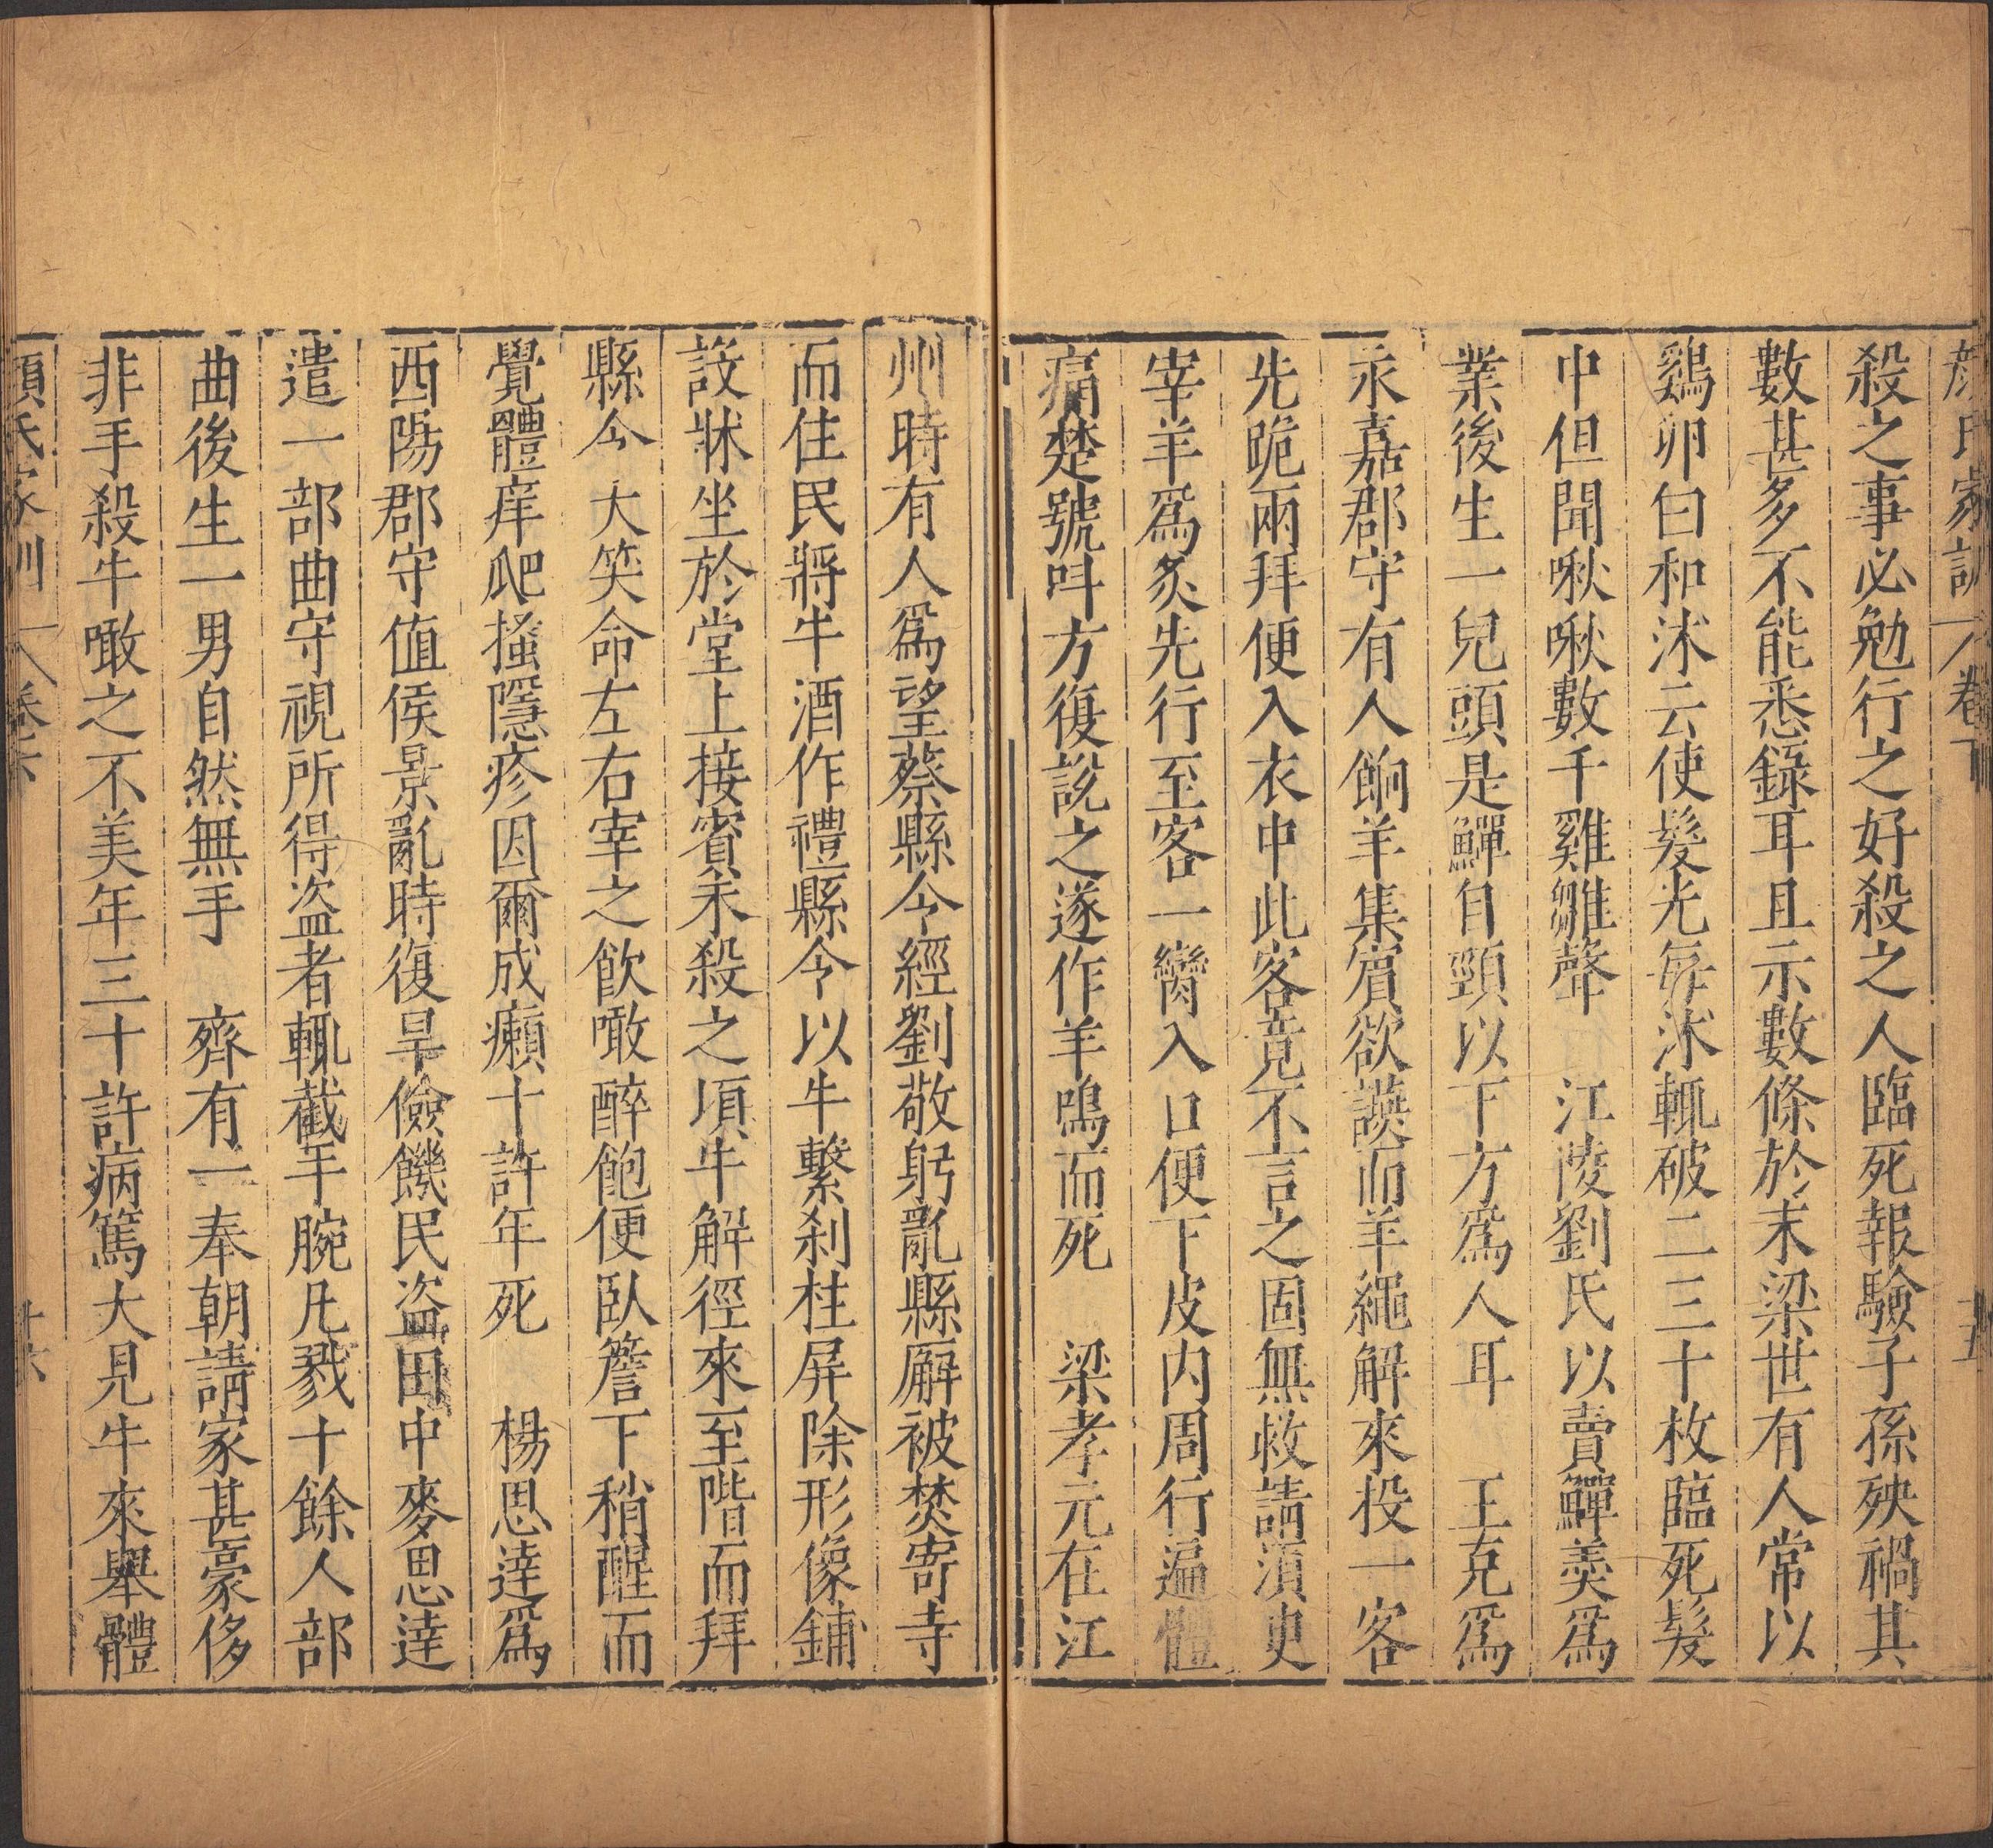 顏氏家訓 卷下 十五
殺之事必勉行之好殺之人臨死報驗子孫殃禍其
數甚多不能悉錄耳且示數條於末梁世有人常以
鷄卵白和沐云使髮光每沐輒破二三十枚臨死髮
中但聞啾啾數千雞雛聲　江陵劉氏以賣鱓羹爲
業後生一兒頭是鱓自頸以下方爲人耳　王克爲
永嘉郡守有人餉羊集賔欲讌而羊繩解來投一客
先跪兩拜便入衣中此客竟不言之固無救請湏臾
宰羊爲炙先行至客一臠入口便下皮内周行遍體
痛楚號呌方復說之遂作羊鳴而死　梁孝元在江
州時有人爲望蔡縣令經劉敬躬亂縣廨被焚寄寺
而住民將牛酒作禮縣令以牛繫刹柱屏除形像鋪
設牀坐於堂上接賓未殺之頃牛解徑來至階而拜
縣令大笑命左右宰之飲噉醉飽便臥簷下稍醒而
覺體痒爬搔隱疹因爾成癩十許年死　楊思達爲
西陽郡守值侯景亂時復旱儉饑民盜田中麥思達
遣一部曲守視所得盜者輒截手腕凡戮十餘人部
曲後生一男自然無手　齊有一奉朝請家甚豪侈
非手殺牛噉之不美年三十許病篤大見牛來舉體
顏氏家訓 卷下 十六